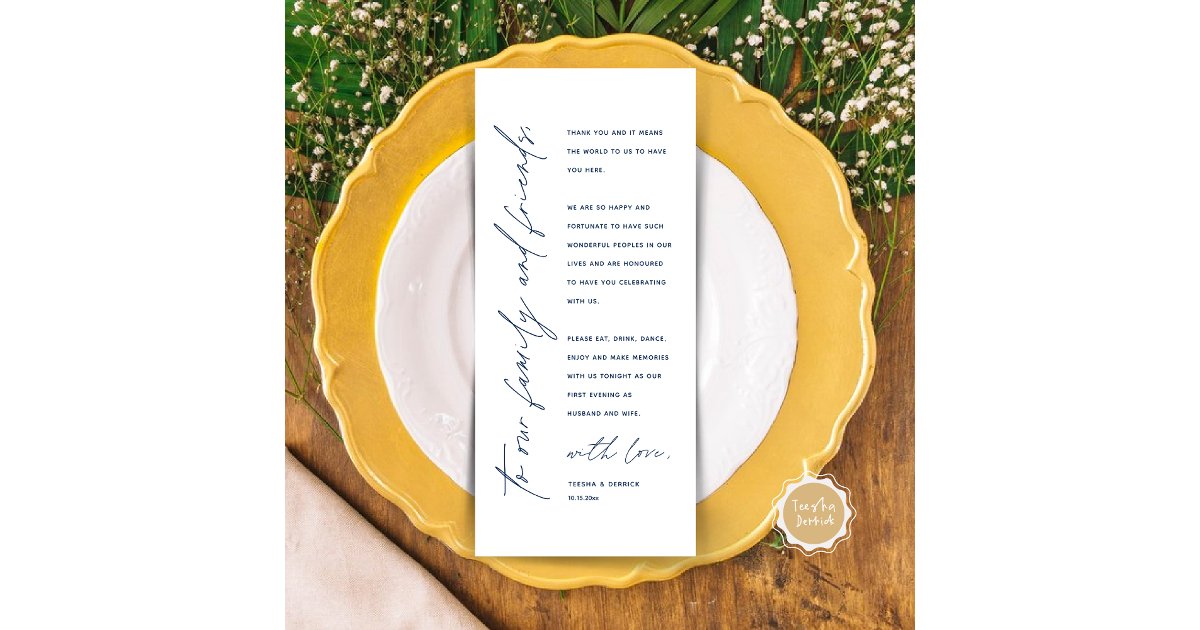 to our family and friends,
THANK YOU AND IT MEANS
THE WORLD TO US TO HAVE
YOU HERE.
WE ARE SO HAPPY AND
FORTUNATE TO HAVE SUCH
WONDERFUL PEOPLES IN OUR
LIVES AND ARE HONOURED
TO HAVE YOU CELEBRATING
WITH US.
PLEASE EAT, DRINK, DANCE,
ENJOY AND MAKE MEMORIES
WITH US TONIGHT AS OUR
FIRST EVENING AS
HUSBAND AND WIFE.
with love,
TEESHA & DERRICK
10.15.20xx
Teesha
Derrick